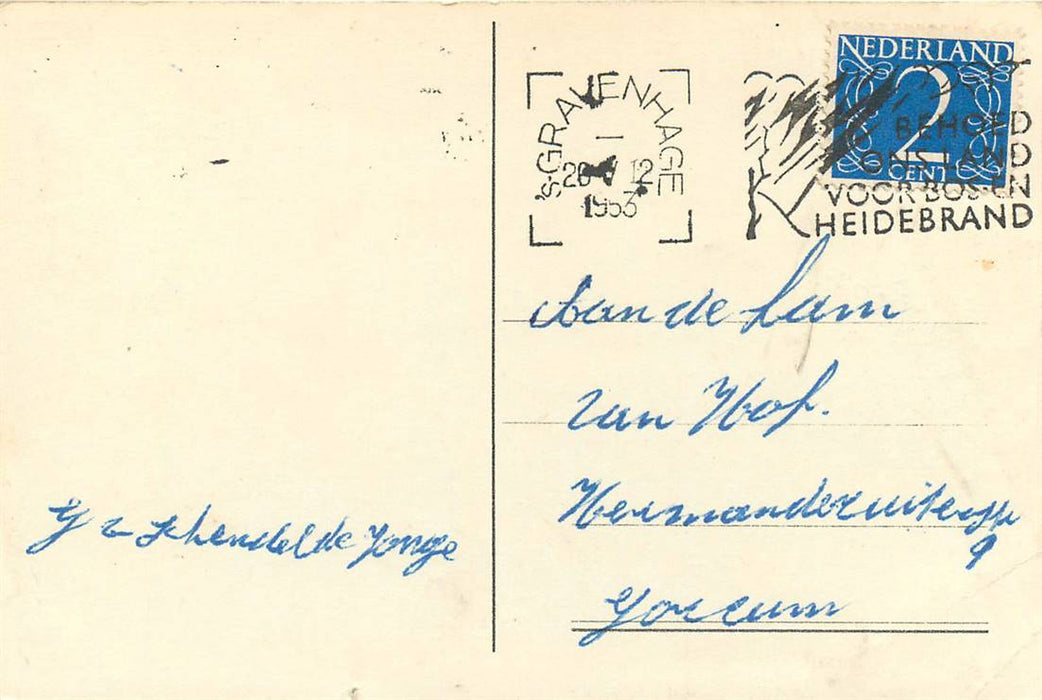 NEDERLAND
2
CENT
'S-GRAVENHAGE
1953
BEHOED
ONS LAND
VOOR BOS-EN
HEIDEBRAND
Aan de fam
van Hof.
Hermanderuiterstr
9
Gorcum
G v Schendel de Jonge